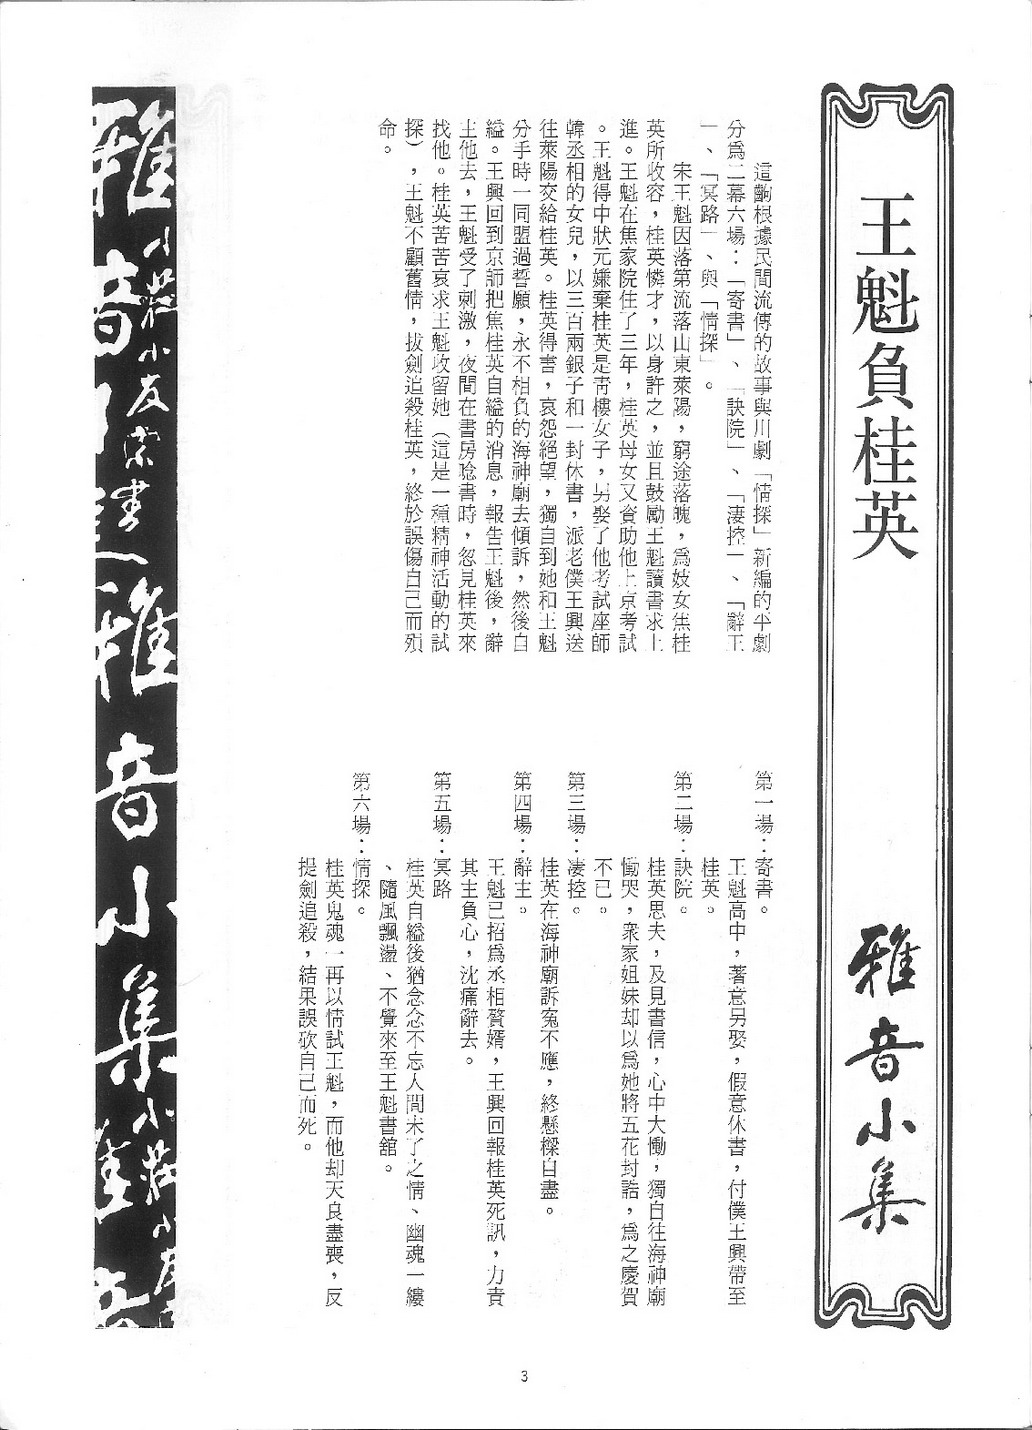 王魁負桂英
雅音小集
這齣根據民間流傳的故事與川劇「情探」新編的平劇
分爲二幕六場：「寄書」、「訣院」、「淒控」、「辭主
」、「冥路」、與「情探」。
宋王魁因落第流落山東萊陽，窮途落魄，爲妓女焦桂
英所收容，桂英憐才，以身許之，並且鼓勵王魁讀書求上
進。王魁在焦家院住了三年，桂英母女又資助他上京考試
。王魁得中狀元嫌棄桂英是靑樓女子，另娶了他考試座師
韓丞相的女兒，以三百兩銀子和一封休書，派老僕王興送
往萊陽交給桂英。桂英得書，哀怨絕望，獨自到她和王魁
分手時一同盟過誓願，永不相負的海神廟去傾訴，然後自
縊。王興回到京師把焦桂英自縊的消息，報告王魁後，辭
主他去，王魁受了刺激，夜間在書房唸書時，忽見桂英來
找他。桂英苦苦哀求王魁收留她（這是一種精神活動的試
探），王魁不顧舊情，拔劍追殺桂英，終於誤傷自己而殞
命。
第一場：寄書。
王魁高中，著意另娶，假意休書，付僕王興帶至
桂英。
第二場：訣院。
桂英思夫，及見書信，心中大慟，獨自往海神廟
慟哭，衆家姐妹却以爲她將五花封誥，爲之慶賀
不已。
第三場：淒控。
桂英在海神廟訴寃不應，終懸樑自盡。
第四場：辭主。
王魁已招爲丞相贅婿，王興回報桂英死訊，力責
其主負心，沈痛辭去。
第五場：冥路
桂英自縊後猶念念不忘人間未了之情、幽魂一縷
、隨風飄盪、不覺來至王魁書舘。
第六場：情探。
桂英鬼魂一再以情試王魁，而他却天良盡喪，反
提劍追殺，結果誤砍自己而死。
雅音小集
3